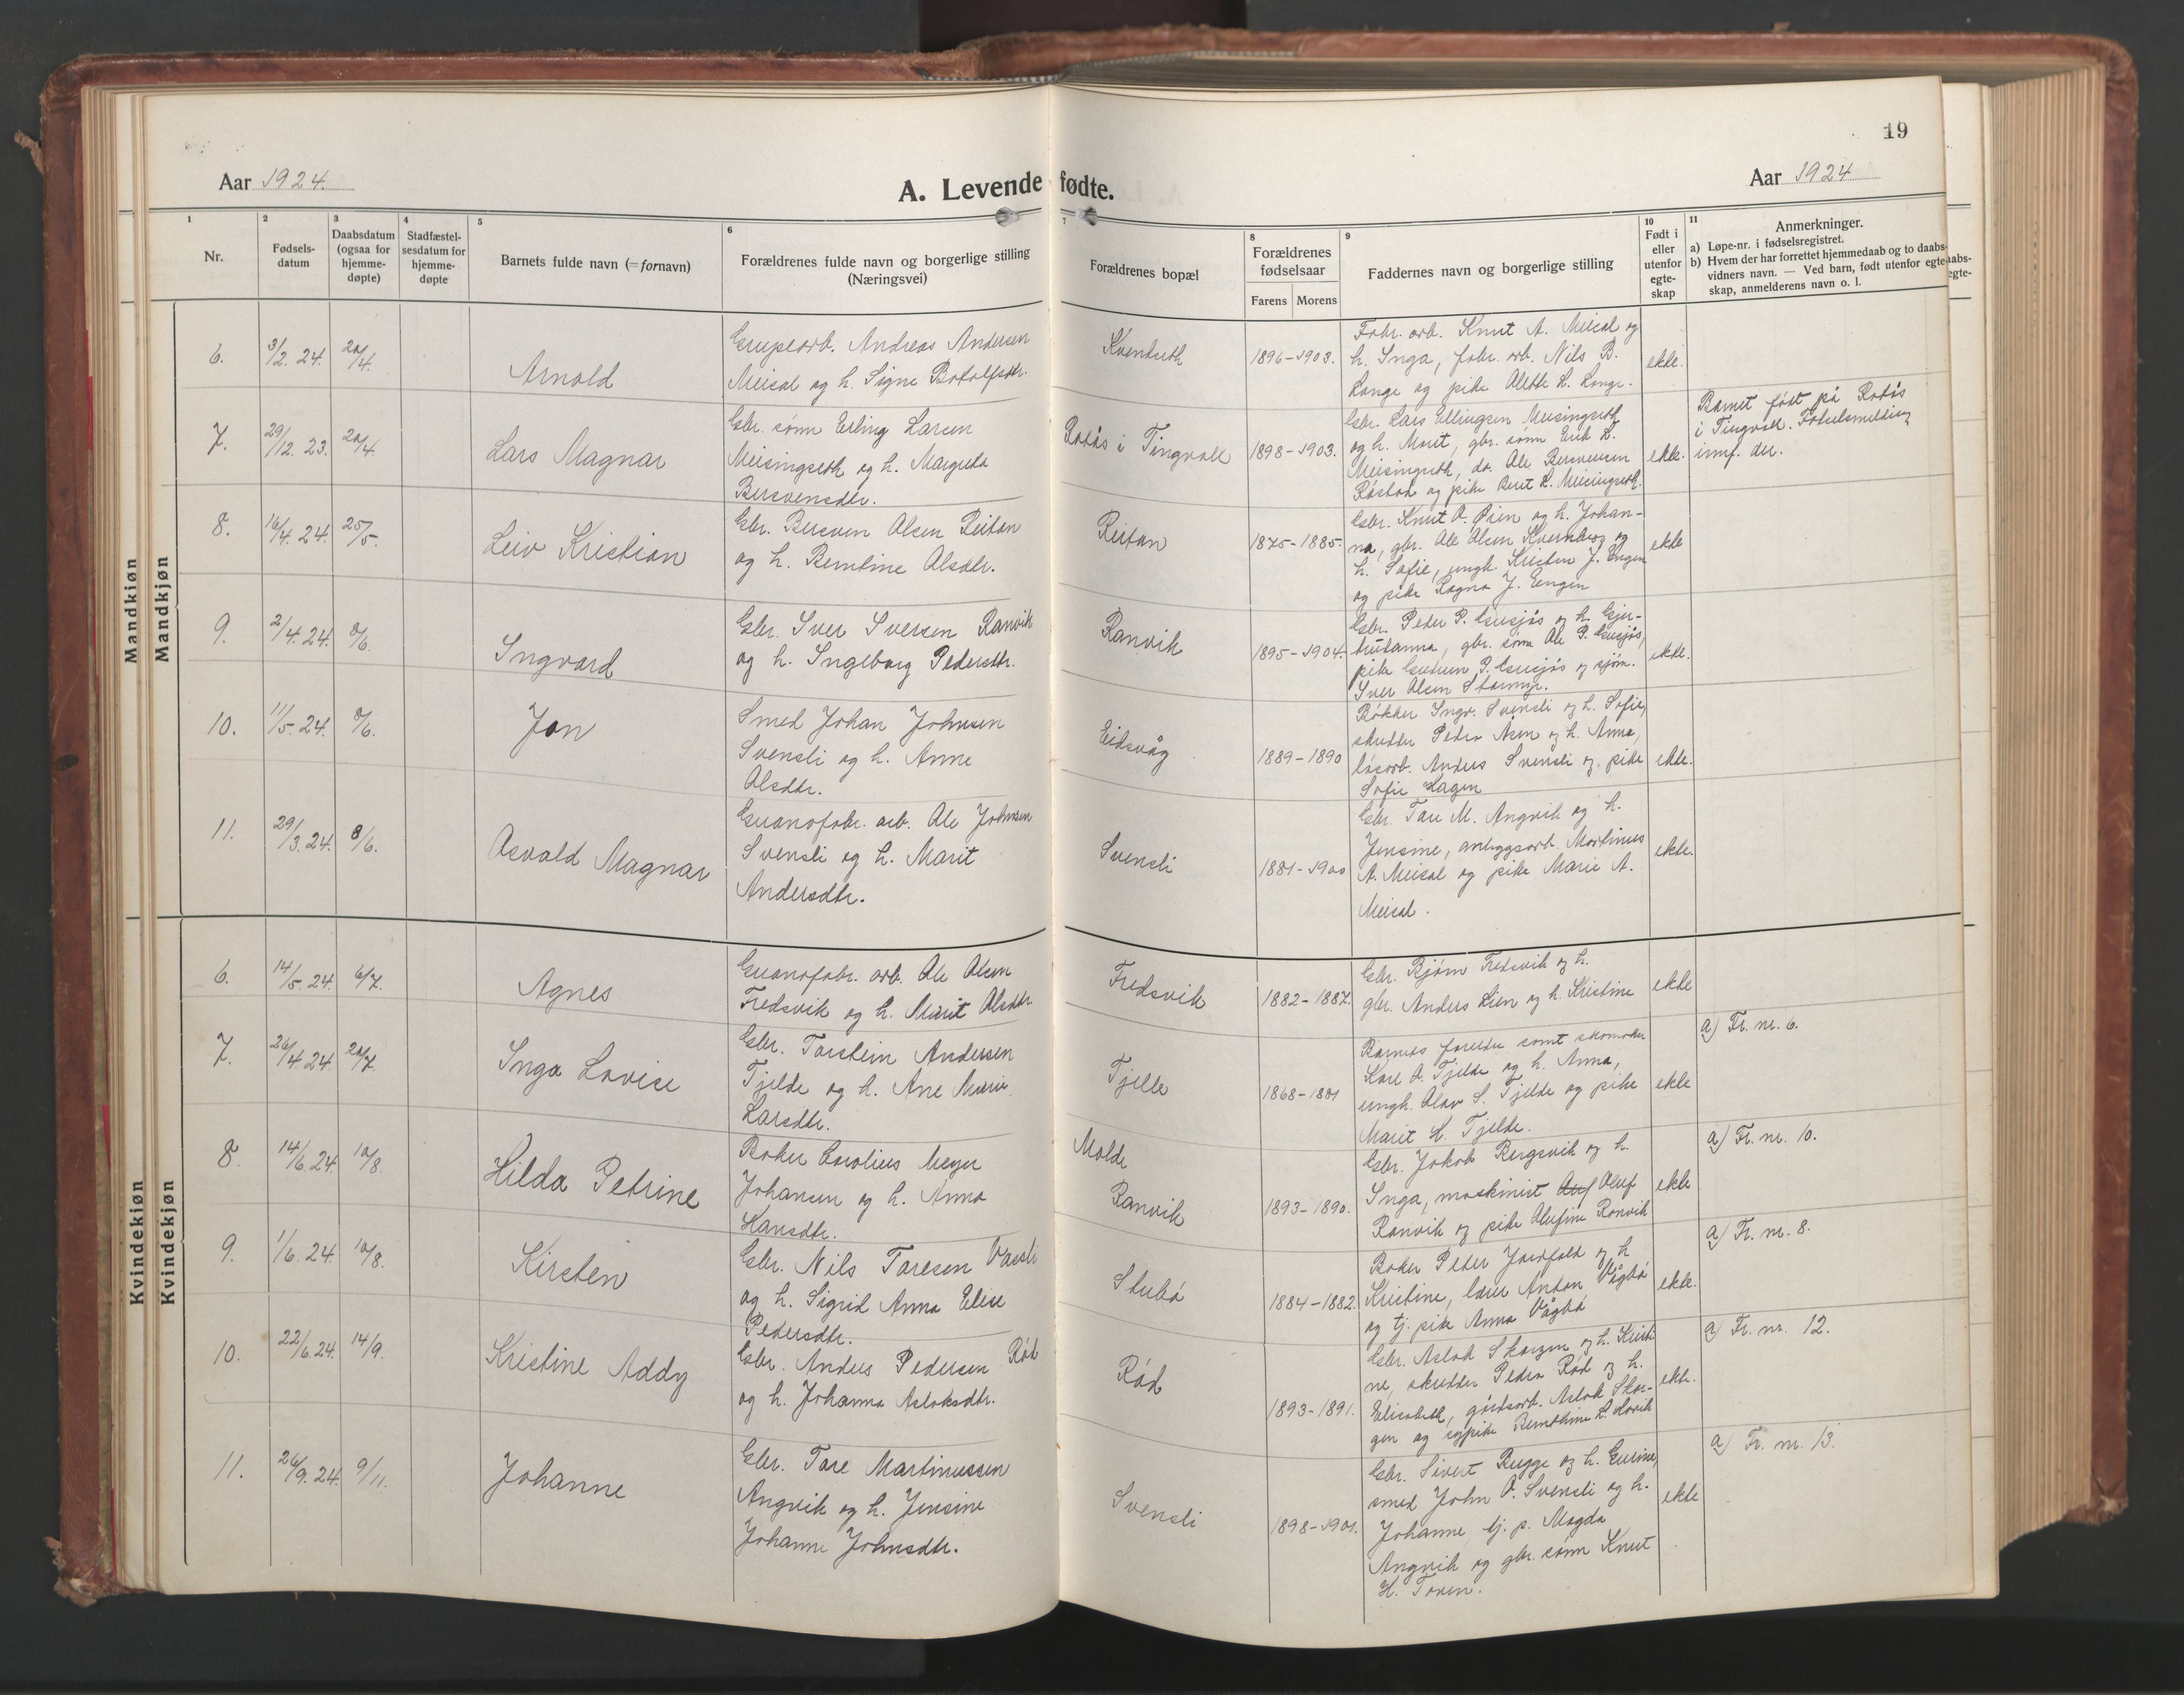 19
Aar 1924.
A. Levende fødte.
Aar 1924
1 2 3 4 5 6 7 8 9 10 11
Nr.
Fødsels-
datum
Daabsdatum
(ogsaa for
hjemme-
døpte)
Stadfæstel-
sesdatum for
hjemme-
døpte
Barnets fulde navn (=fornavn)
Forældrenes fulde navn og borgerlige stilling
(Næringsvei)
Forældrenes bopæl
Forældrenes
fødselsaar
Farens Morens
Faddernes navn og borgerlige stilling
Født i
eller
utenfor
egte-
skap
Anmerkninger.
a) Løpe-nr. i fødselsregistret.
b) Hvem der har forrettet hjemmedaab og to daabs-
vidners navn. — Ved barn, født utenfor egte-
skap, anmelderens navn o. l.
Mandkjøn
Mandkjøn
6. 3/2. 24. 20/4. Arnold
Grupearb. Andreas Andersen
Meisal og h. Signe Botolfsdtr.
Kvernseth
1896-1903.
Fabr. arb. Knut A. Meisal og
h. Inga, fabr. arb. Nils B.
Lange og pike Alette L. Lange.
ekte.
7. 29/12. 23. 20/4. Lars Magnar
Gbr. sønn Erling Larsen
Meisingseth og h. Margreta
Bersvensdtr.
Rotås i Tingvoll
1898-1903.
Gbr. Lars Ellingsen Meisingseth
og h. Marit, gbr. sønn Erik L.
Meisingseth, do. Ole Bersvensen
Røstad og pike Beret L. Meisingseth.
ekte.
Barnet født på Rotås
i Tingvoll. Fødselsmelding
innf. der.
8. 16/4. 24. 25/5. Leiv Kristian
Gbr. Bersven Olsen Reitan
og h. Berntine Olsdtr.
Reitan
1875-1885.
Gbr. Knut O. Øien og h. Johan-
na, gbr. Ole Olsen Kvernberg og
h. Sofie, ungk. Kristen J. Engen
og pike Ragna J. Engen
ekte
9. 2/4. 24. 8/6. Ingvard
Gbr. Iver Iversen Ranvik
og h. Ingeborg Pedersdtr.
Ranvik
1895-1904.
Gbr. Peder P. Gusjås og h. Gjer-
trudanna, gbr. sønn Ole P. Gusjås,
pike Gudrun P. Gusjås og sjøm.
Iver Olsen
ekte.
10. 11/5. 24. 8/6. Jon
Smed Johan Johnsen
Svensli og h. Anne
Olsdtr.
Eidsvåg
1889-1890
Bøkker Ingv. Svensli og h. Sofie,
skredder Peder Åsen og h. Anna,
løsarb. Anders Svensli og pike
Sofie Hagen
ekte.
11. 29/3. 24. 8/6. Osvald Magnar
Guanofabr. arb. Ole Johnsen
Svensli og h. Marit
Andersdtr.
Svensli
1881-1900
Gbr. Tore M. Angvik og h.
Jensine, anleggsarb. Martinus
A. Meisal og pike Marie A.
Meisal.
ekte.
Kvindekjøn
Kvindekjøn
6. 14/5. 24. 6/7. Agnes
Guanofabr. arb. Ole Olsen
Fredsvik og h. Marit Olsdtr.
Fredsvik
1882-1887.
Gbr. Bjørn Fredsvik og h.
gbr. Anders Lien og h. Kristine
ekte
7. 26/4. 24. 20/7. Inga Lovise
Gbr. Torstein Andersen
Tjelde og h. Ane Marie
Larsdtr.
Tjelle
1868-1881
Barnets foreldre samt skomaker
Karl O. Tjelde og h. Anna,
ungk. Olav S. Tjelde og pike
Marit H. Tjelde.
ekte
a) Fr. nr. 6.
8. 14/6. 24. 10/8. Hilda Petrine
Baker Carolius Meyer
Johansen og h. Anna
Hansdtr.
Molde
Ranvik
1893-1890.
Gbr. Jakob Bergsvik og h.
Inga, maskinist Oluf
Ranvik og pike Olufine Ranvik
ekte
a) Fr. nr. 10.
9. 1/6. 24. 10/8. Kirsten
Gbr. Nils Toresen Vassli
og h. Sigrid Anna Elise
Pedersdtr.
Stubø
1884-1882.
Baker Peter Jarnfald og h
Kristine, lærer Anton Vågbø
og tj. pike Anna Vågbø
ekte.
a) Fr. nr. 8.
10. 22/6. 24. 14/9. Kristine Addy
Gbr. Anders Pedersen Rød
og h. Johanna Aslaksdtr.
Rød
1893-1891.
Gbr. Aslak Skorgen og h. Kristi-
ne, skredder Peder Rød og h.
Elisabeth, gårdsarb. Aslak Skor-
gen og sypike Bernthine L. Horvik
ekte.
a) Fr. nr. 12.
11. 26/9. 24. 9/11. Johanne
Gbr. Tore Martinussen
Angvik og h. Jensine
Johanne Johnsdtr.
Svensli
1898-1901.
Gbr. Sivert Bugge og h. Gurine,
smed John O. Svensli og h.
Johanne, tj. p. Magda
Angvik og gbr. sønn Knut
H. Toven.
ekte
a) Fr. nr. 13.